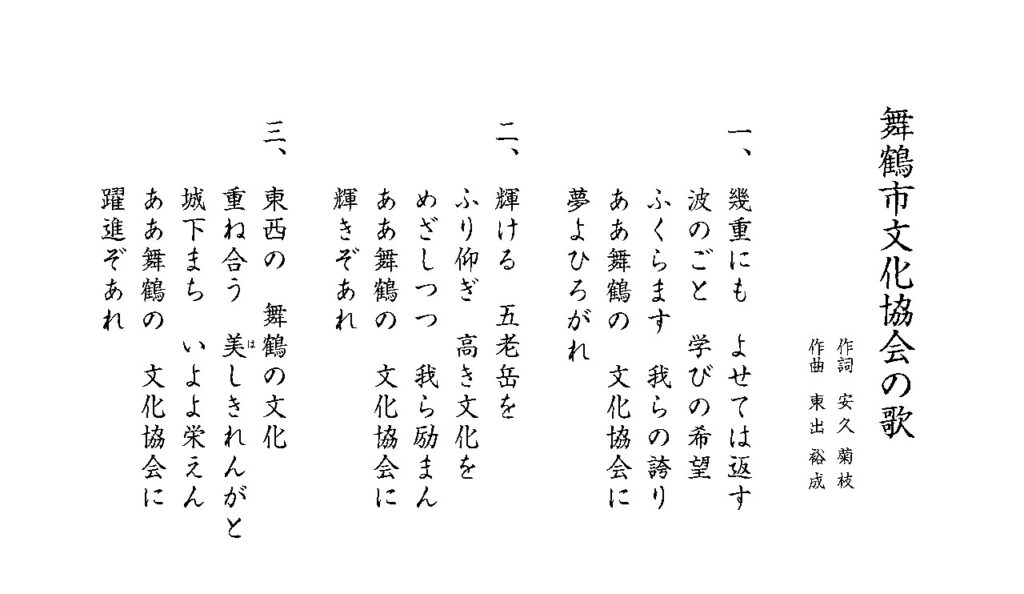 舞鶴市文化協会の歌
作詞 安久 菊枝
作曲 東出 裕成
一、 幾重にも よせては返す
波のごと 学びの希望
ふくらます 我らの誇り
ああ舞鶴の 文化協会に
夢よひろがれ
二、 輝ける 五老岳を
ふり仰ぎ 高き文化を
めざしつつ 我ら励まん
ああ舞鶴の 文化協会に
輝きぞあれ
三、 東西の 舞鶴の文化
重ね合う 美しきれんがと
は
城下まち いよよ栄えん
ああ舞鶴の 文化協会に
躍進ぞあれ